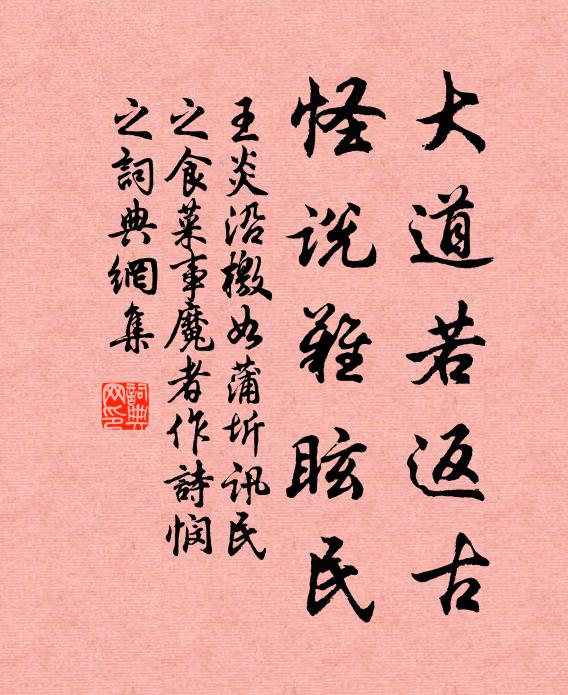 大道若返古
怪说难眩民
王炎沿檄如蒲圻讯民
之食菜事魔者作詩悯
之詞典網集
詞典
网印